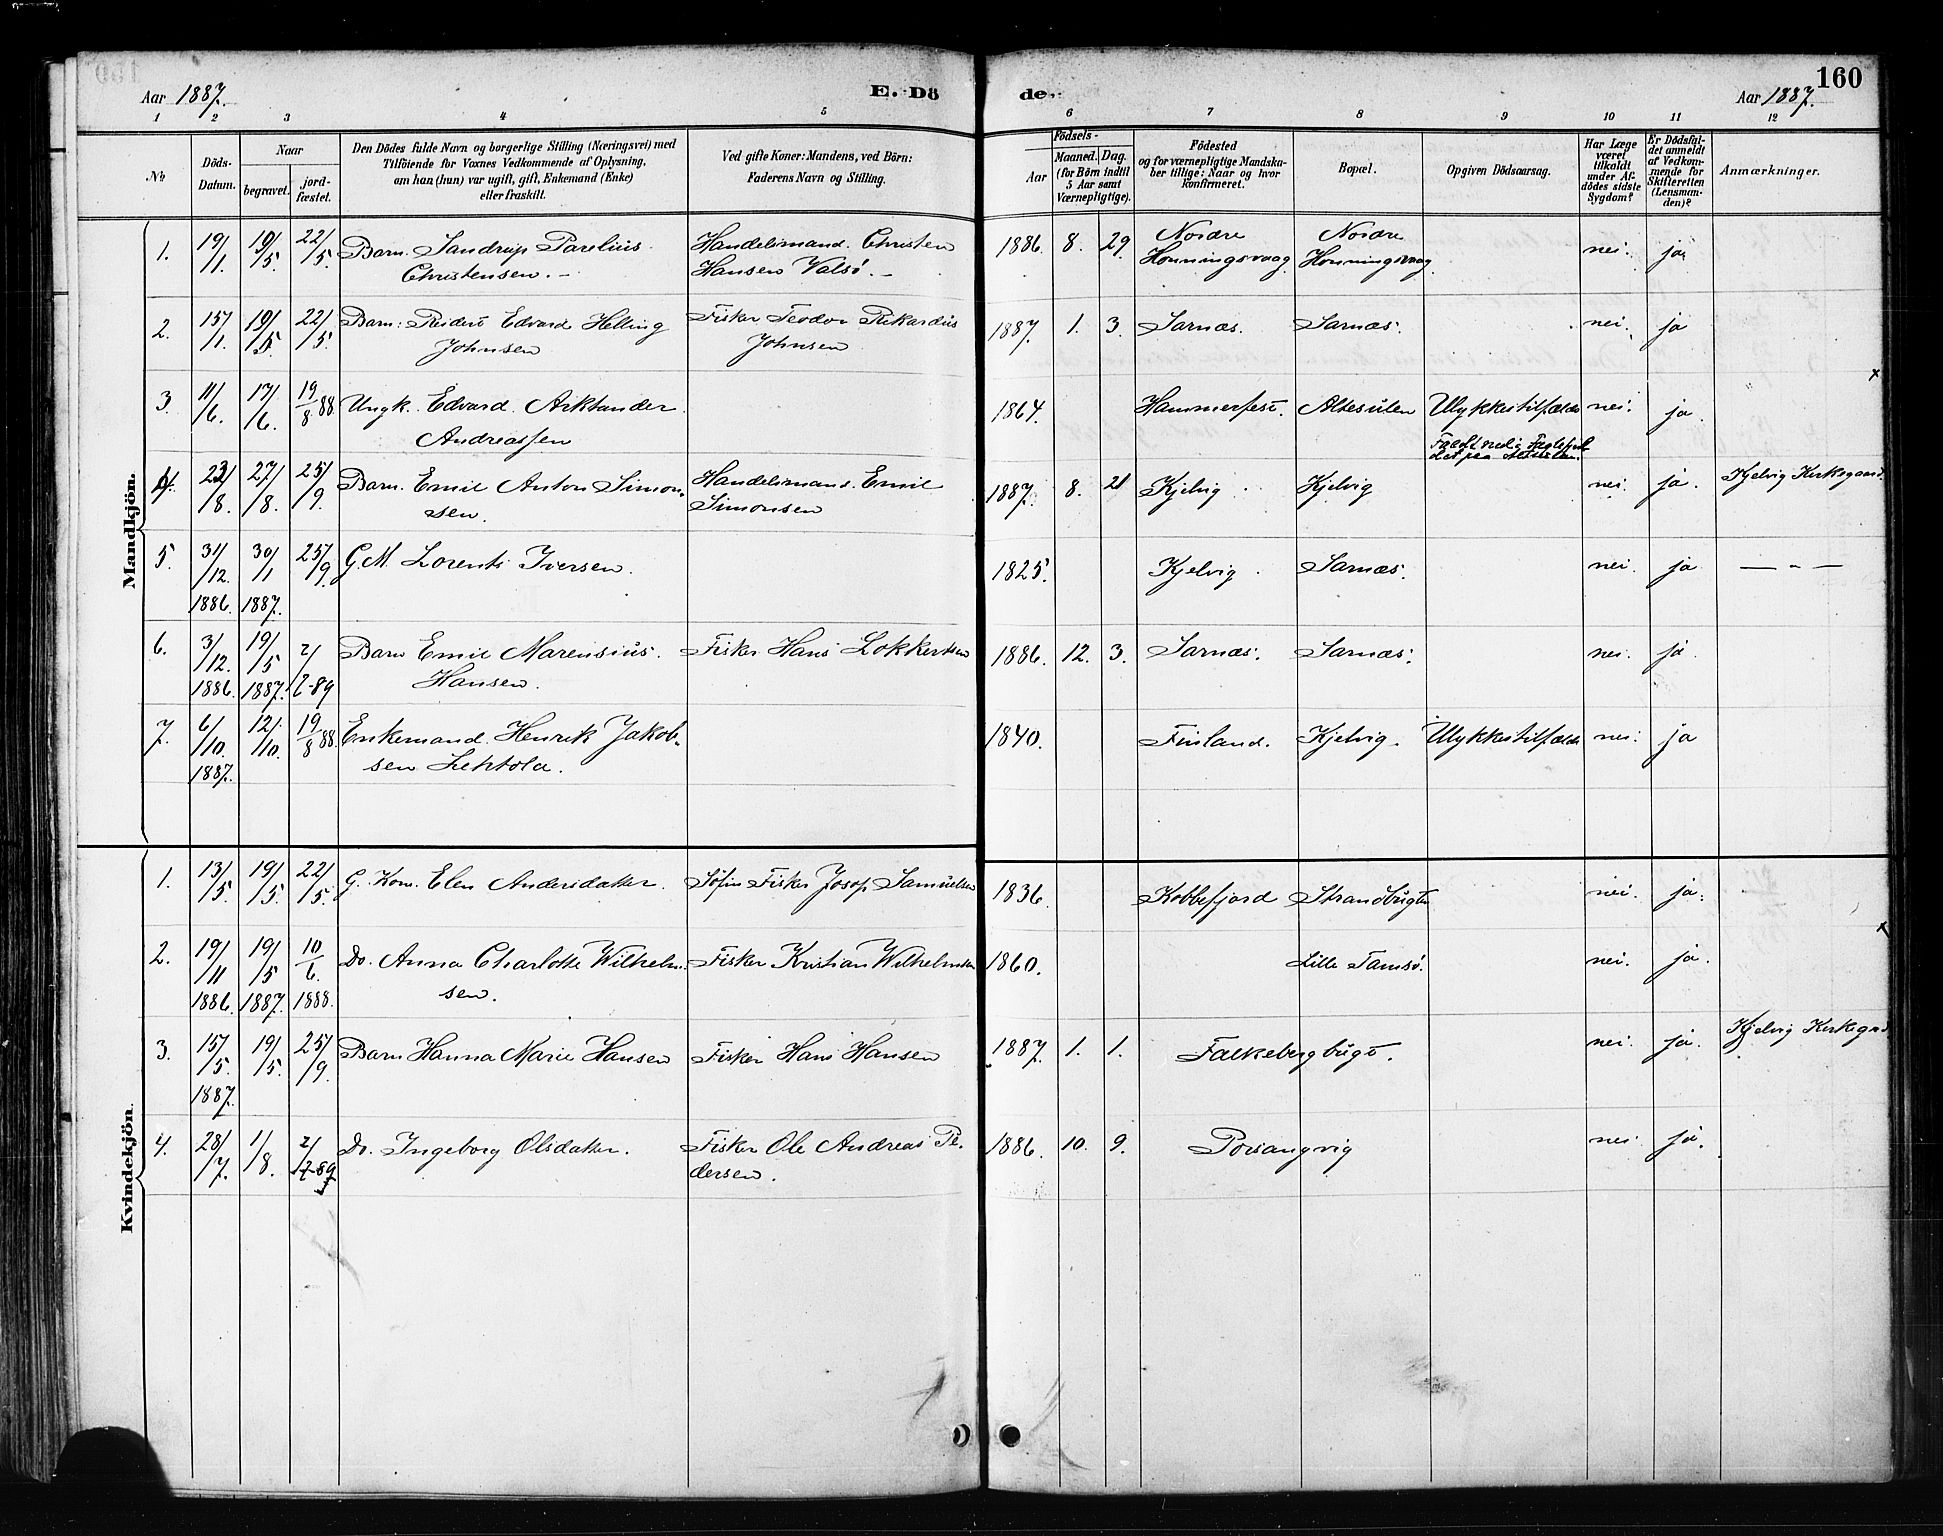 160
Aar 1887.
E. Dö
de.
Aar 1887.
1 2 3 4 5 6 7 8 9 10 11 12
No
Döds-Datum.
Naar
begravet.
jord-fæstet.
Den Dödes fulde Navn og borgerlige Stilling (Næringsvei) med
Tilföiende for Voxnes Vedkommende af Oplysning,
om han (hun) var ugift, gift, Enkemand (Enke)
eller fraskilt.
Ved gifte Koner: Mandens, ved Börn:
Faderens Navn og Stilling.
Födsels-
Aar
Maaned. Dag.
(for Börn indtil
5 Aar samt
Værnepligtige).
Födested
og for værnepligtige Mandska-
ber tillige: Naar og hvor
konfirmeret.
Bopæl.
Opgiven Dödsaarsag.
Har Læge
været
tilkaldt
under Af-
dödes sidste
Sygdom?
Er Dödsfal-
det anmeldt
af Vedkom-
mende for
Skifteretten
(Lensman-
den)?
Anmærkninger.
Mandkjön.
1. 19/1. 19/5 22/5. Barn. Sandrup Parelius Handelsmand. Christen 1886 8. 29. Nordre Nordre nei. ja
Christensen. Hansen Valsö. Honningsvaag Honningsvaag
2. 15/1. 19/5. 22/5. Barn: Reidert Edvard Helling Fisker Teodor Rikardus 1887. 1. 3. Sarnæs. Sarnæs. nei. ja
Johnsen Johnsen
3. 11/6. 17/6. 19/8 88. Ungk. Edvard Arktander 1864. Hammerfest. Altesulen Ulykkestilfælde nei. ja.
Andreassen
Faldt ned i Fuglefjel
det paa
4. 23/8. 27/8. 25/9. Barn. Emil Anton Simon- Handelsmand. Emil 1887. 8. 21 Kjelvig Kjelvig nei. ja. Kjelvig Kirkegaard
sen. Simonsen
5. 31/12. 30/1 25/9. G. M. Lorents Iversen. 1825. Kjelvig. Sarnæs. nei. ja — " —
1886. 1887.
6. 3/12. 19/5 2/ Barn Emil Marensius. Fisker Hans Lokkertsen 1886. 12. 3. Sarnæs. Sarnæs. nei. ja.
1886. 1887. 2-89 Hansen.
7. 6/10. 12/10. 19/8 88. Enkemand. Henrik Jakob- 1840. Finland. Kjelvig. Ulykkestilfælde nei. ja
1887. sen Lehtola.
Kvindekjön.
1. 13/5. 19/5. 22/5. G. Kone. Elen Andersdatter. Söfin Fisker Josop Samuelsen 1836. Kobbefjord Strandbugten nei. ja.
2. 19/11 19/5 10/6. Do. Anna Charlotte Wilhelm- Fisker Kristian Wilhelmsen 1860. Lille Tamsö. nei. ja.
1886. 1887. 1888. sen.
3. 15/5. 19/5. 25/9. Barn Hanna Marie Hansen Fisker Hans Hansen 1887. 1. 1. Falkebergbugt. nei. ja. Kjelvig Kirkegaard
1887.
4. 28/7. 1/8. 2/2-89 Do. Ingeborg Olsdatter. Fisker Ole Andreas Pe- 1886. 10. 9. Porsangvig nei ja.
dersen.